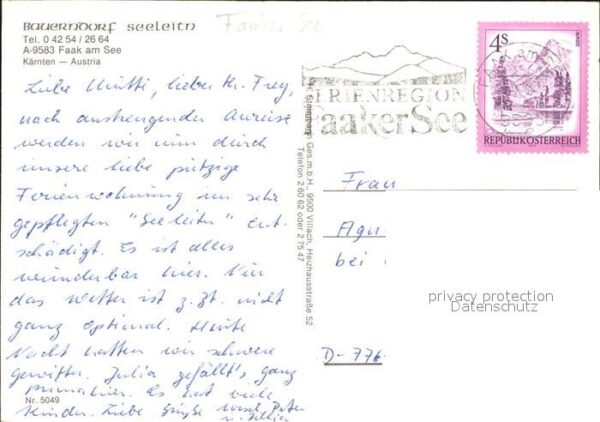 Bauerndorf seeleitn
Tel. 0 42 54 / 26 64
A-9583 Faak am See
Kärnten — Austria
Faaker See
Liebe Mutti, lieber Hr. Frey,
nach anstrengender Anreise
werden wir nun durch
unsere liebe putzige
Ferienwohnung im sehr
gepflegten "Seeleitn" ent-
schädigt. Es ist alles
wunderbar hier. Nur
das Wetter ist z.Zt. nicht
ganz optimal. Heute
Nacht hatten wir schwere
Gewitter. Julia gefällt's ganz
prima hier. Es hat viele
Kinder. Liebe Grüße Peter
Nr. 5049
Ges.m.b.H., 9500 Villach, Heizhausstraße 52
Telefon 2 60 62 oder 2 75 47
FERIENREGION
Faaker See
4 S
REPUBLIK ÖSTERREICH
Frau
Agn
bei
D-776
privacy protection
Datenschutz